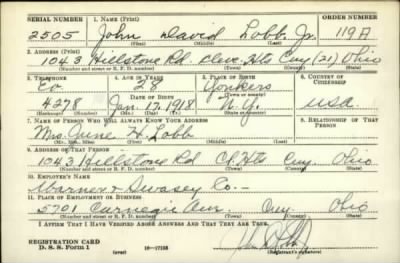 SERIAL NUMBER 1. NAME (Print) ORDER NUMBER
2505 John David Lobb Jr. 119A
(First) (Middle) (Last)
2. ADDRESS (Print)
1043 Hillstone Rd. Cleve. Hts Cuy (21) Ohio
(Number and street or R. F. D. number) (Town) (County) (State)
3. TELEPHONE 4. AGE IN YEARS 5. PLACE OF BIRTH 6. COUNTRY OF CITIZENSHIP
28 Yonkers
DATE OF BIRTH (Town or county)
4278 Jan. 17, 1918 N.Y. USA
(Exchange) (Number) (Mo.) (Day) (Yr.) (State or country)
7. NAME OF PERSON WHO WILL ALWAYS KNOW YOUR ADDRESS 8. RELATIONSHIP OF THAT PERSON
Mrs. H. Lobb
(Mr., Mrs., Miss) (First) (Middle) (Last)
9. ADDRESS OF THAT PERSON
1043 Hillstone Rd Cl. Hts Cuy. Ohio
(Number and street or R. F. D. number) (Town) (County) (State)
10. EMPLOYER'S NAME
Warner & Swasey Co.-
11. PLACE OF EMPLOYMENT OR BUSINESS
5701 Carnegie Ave. Cuy Ohio
(Number and street or R. F. D. number) (Town) (County) (State)
I AFFIRM THAT I HAVE VERIFIED ABOVE ANSWERS AND THAT THEY ARE TRUE.
REGISTRATION CARD
D. S. S. Form 1 (over) 16-17105 (Registrant's signature)